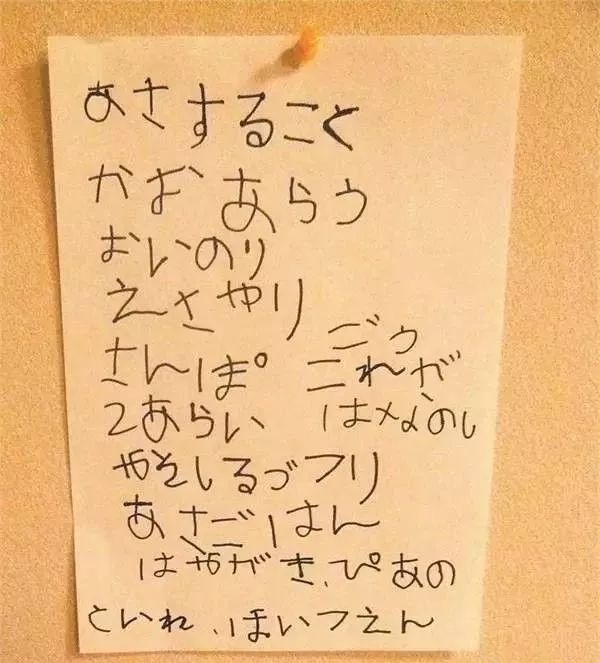 あさすること
かお あらう
おいのり
えさやり
さんぽ
てあらい
ごう
これが
はなのし
みそしるづくり
あさごはん
はみがき、ぴあの
といれ、ほいくえん